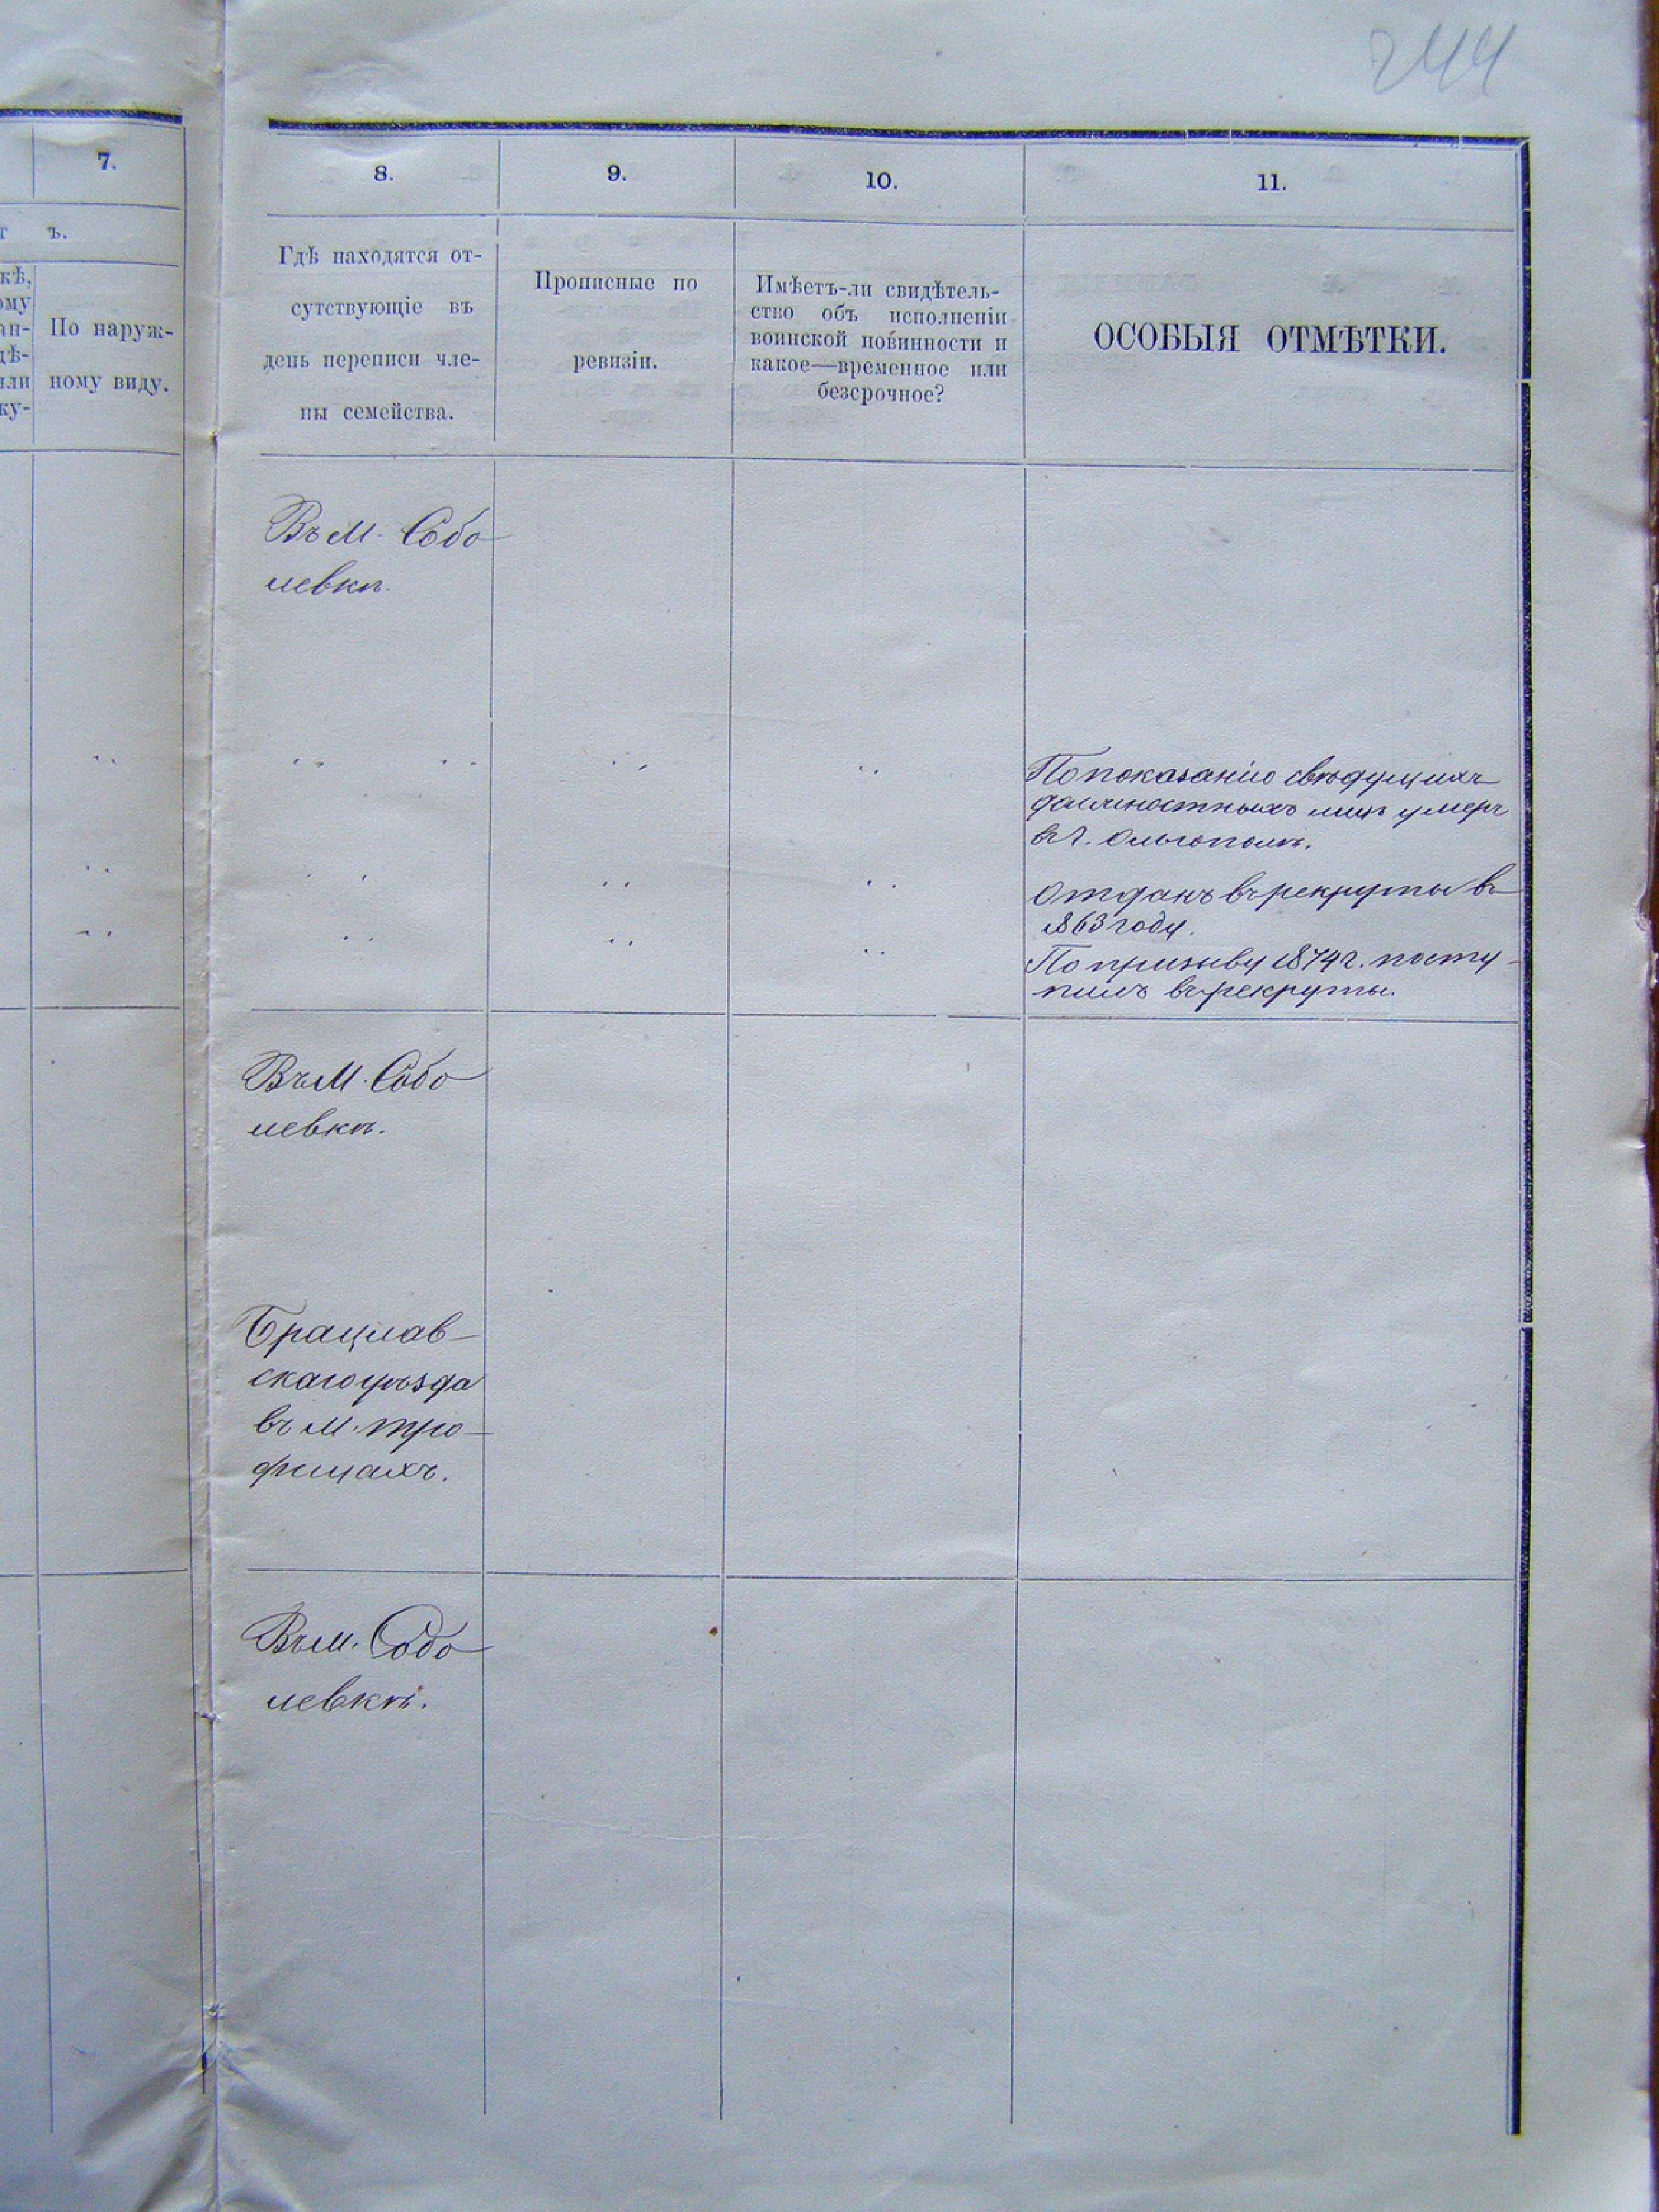 244
7.
8.
9.
10.
11.
ъ.
кѣ,
ому
ан-
дѣ-
или
ку-
По наруж-
ному виду.
Гдѣ находятся от-
сутствующіе въ
день переписи чле-
ны семейства.
Прописные по
ревизіи.
Имѣетъ-ли свидѣтель-
ство объ исполненіи
воинской повинности и
какое—временное или
безсрочное?
ОСОБЫЯ ОТМѢТКИ.
Въ М. Собо
левкѣ.
По показанію свѣдущихъ
должностныхъ лицъ умеръ
въ г. Ольгополѣ.
Отданъ въ рекруты въ
1863 году.
По призыву 1874 г. посту-
пилъ въ рекруты.
Въ М. Собо
левкѣ.
Брацлав-
скаго уѣзда
въ М. Тро-
стянцахъ.
Въ М. Собо
левкѣ.